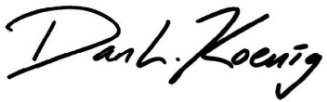 Dan L. Koenig